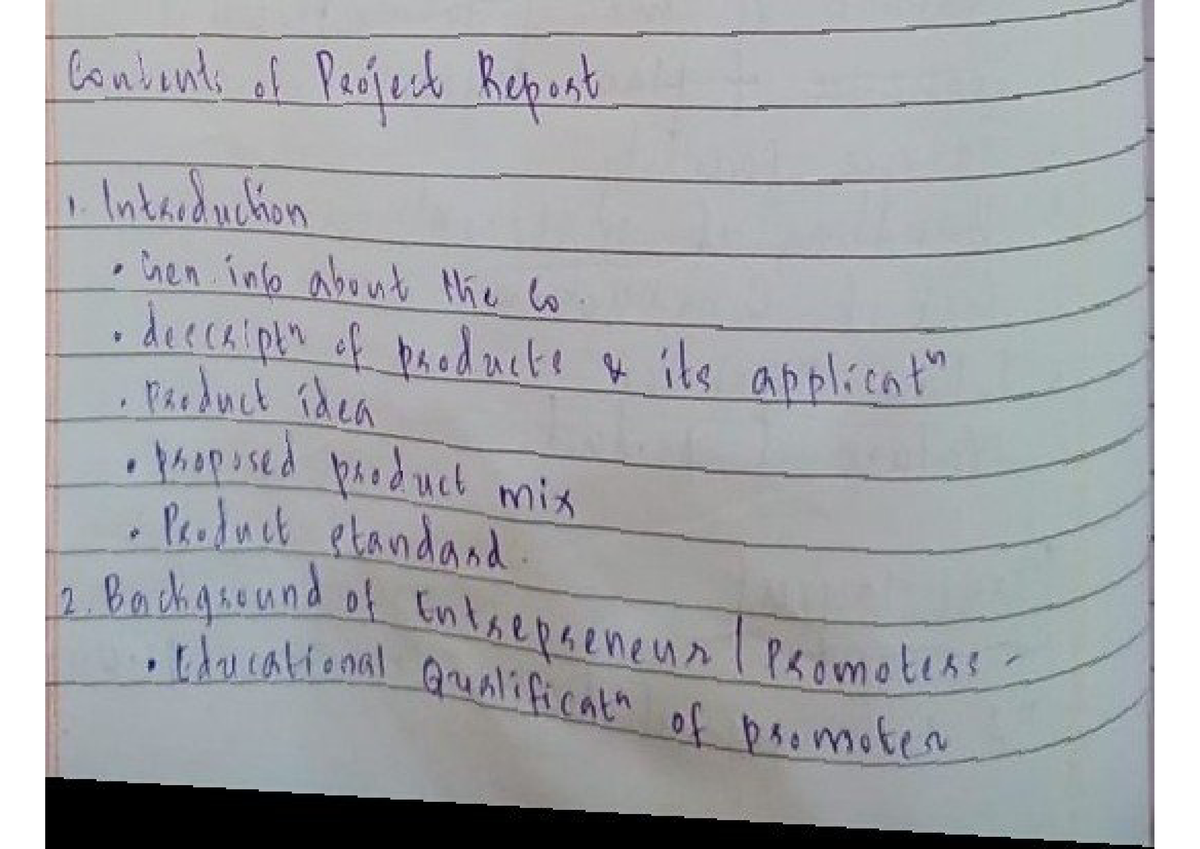 Contents of Project Report
1. Introduction
• Gen. info about the Co.
• descriptⁿ of products & its applicatⁿ
• Product idea
• proposed product mix
• Product standard.
2. Background of Entrepreneur / Promoters -
• Educational Qualificatⁿ of promoter